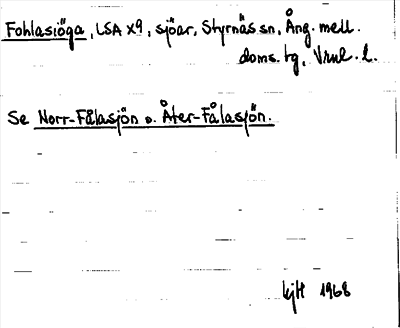 Fohlasiöga, LSA X9, sjöar, Styrnäs sn, Ång. mell.
doms. tg, Vrml. l.
Se Norr-Fålasjön o. Åter-Fålasjön.
KjH 1968